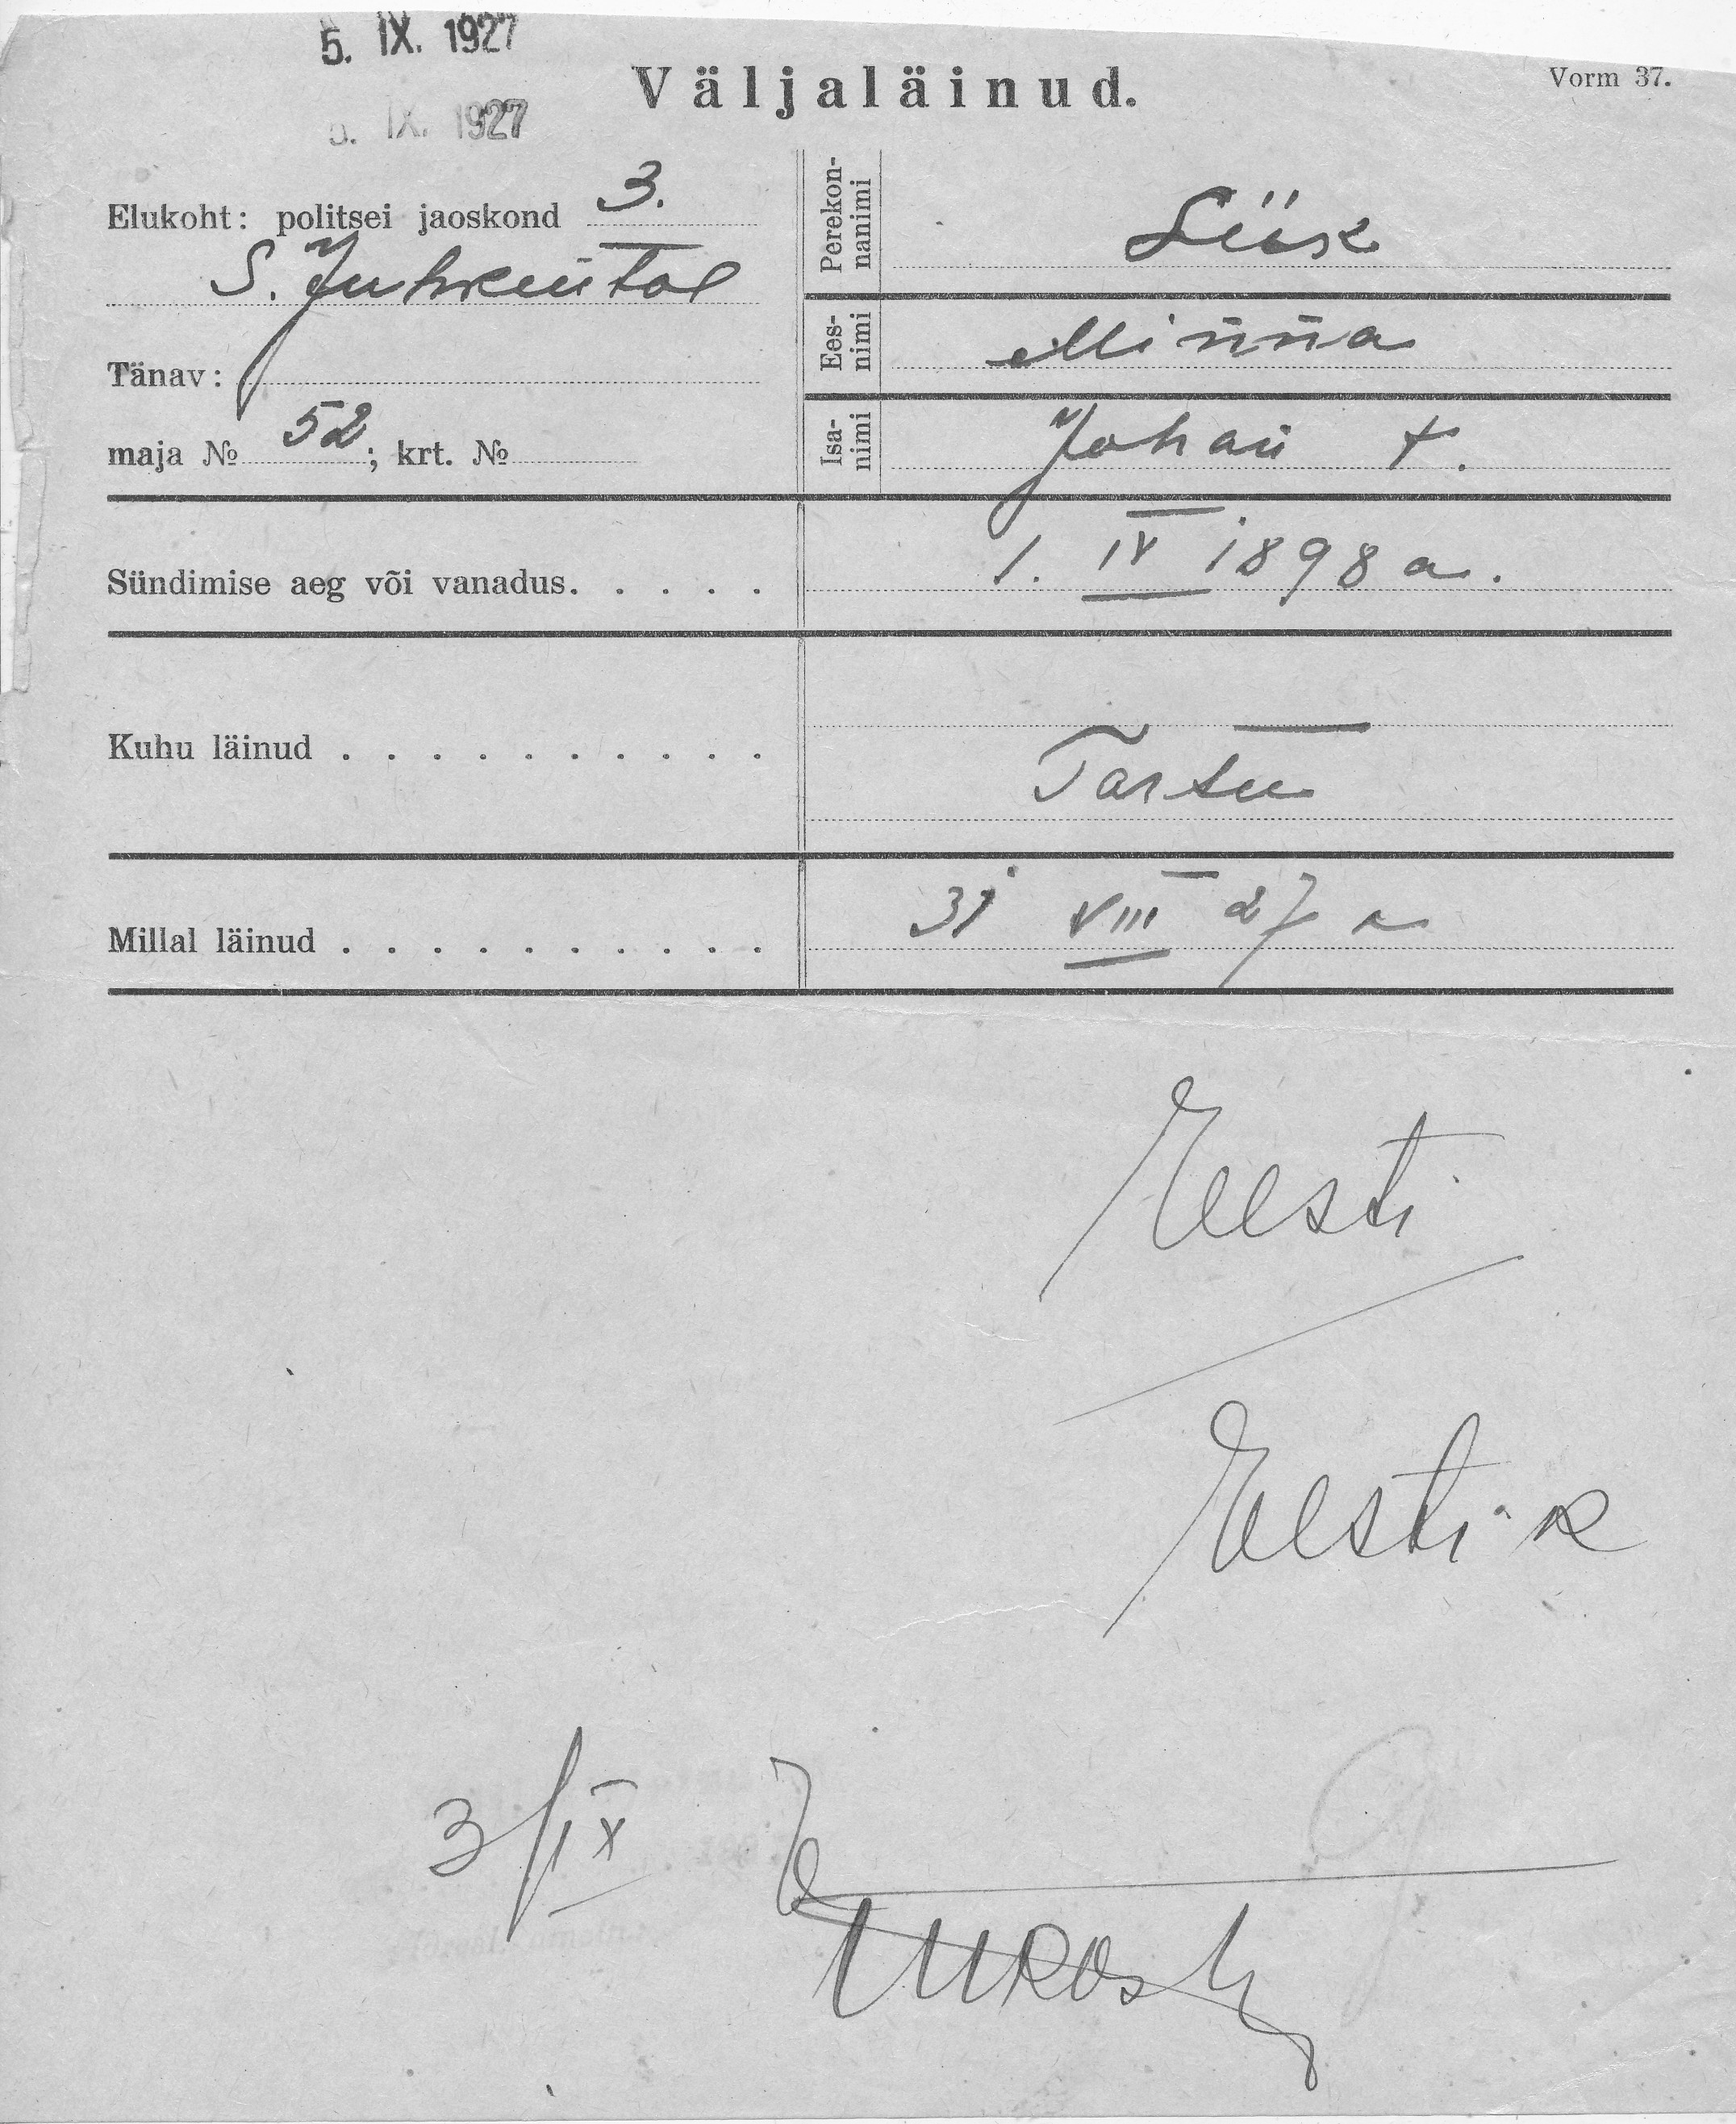 5. IX. 1927
Väljaläinud.
Vorm 37.
5. IX. 1927
Elukoht: politsei jaoskond 3.
S. Juhkental
Tänav:
maja № 52; krt. №
Perekon-
nanimi
Siisk
Ees-
nimi
Minna
Isa-
nimi
Johan t.
Sündimise aeg või vanadus. . . . . 1. IV 1898 a.
Kuhu läinud . . . . . . . . . . Tartu
Millal läinud . . . . . . . . . . 31 VIII 27 a
Eesti
Eesti k
3/IX